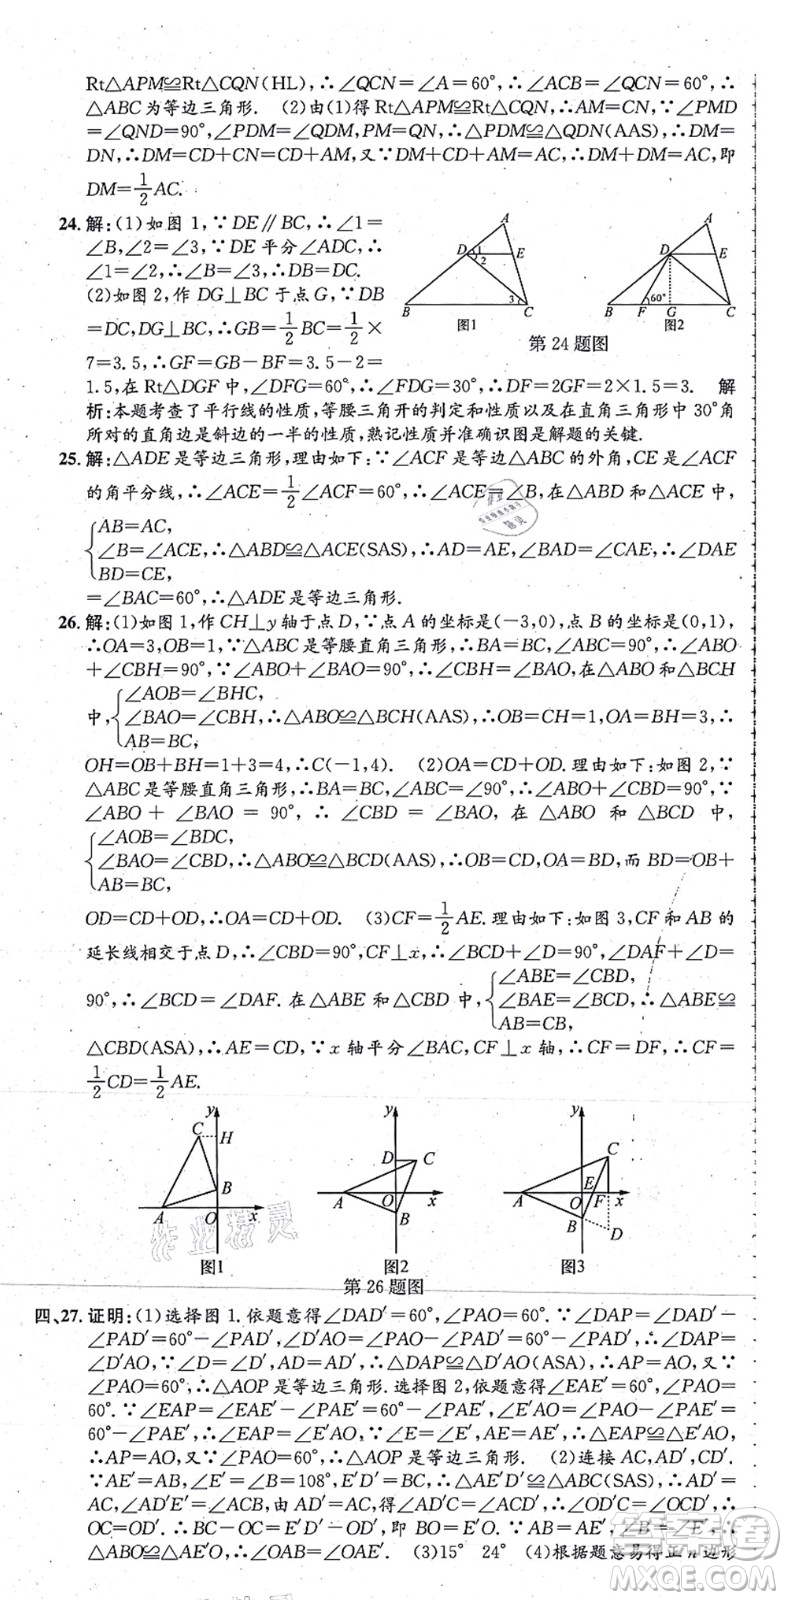 Rt△APM≌Rt△CQN(HL),∴∠QCN=∠A=60°,∴∠ACB=∠QCN=60°,∴
△ABC为等边三角形. (2)由(1)得 Rt△APM≌Rt△CQN,∴AM=CN,∵∠PMD
=∠QND=90°,∠PDM=∠QDM,PM=QN,∴△PDM≌△QDN(AAS),∴DM=
DN,∴DM=CD+CN=CD+AM,又∵DM+CD+AM=AC,∴DM+DM=AC,即
DM=1/2AC.
24.解:(1)如图1,∵DE∥BC,∴∠1=
∠B,∠2=∠3,∵DE平分∠ADC,∴
∠1=∠2,∴∠B=∠3,∴DB=DC.
(2)如图2,作DG⊥BC于点G,∵DB
=DC,DG⊥BC,∴GB=1/2BC=1/2×
7=3.5,∴GF=GB-BF=3.5-2=
A
D
1
2
E
B
3
C
图1
A
D
E
60°
B
F
G
C
图2
第24题图
1.5,在Rt△DGF中,∠DFG=60°,∴∠FDG=30°,∴DF=2GF=2×1.5=3. 解
析:本题考查了平行线的性质,等腰三角开的判定和性质以及在直角三角形中30°角
所对的直角边是斜边的一半的性质,熟记性质并准确识图是解题的关键.
25.解:△ADE是等边三角形,理由如下:∵∠ACF是等边△ABC的外角,CE是∠ACF
的角平分线,∴∠ACE=1/2∠ACF=60°,∴∠ACE=∠B,在△ABD和△ACE中,
AB=AC,
∠B=∠ACE,∴△ABD≌△ACE(SAS),∴AD=AE,∠BAD=∠CAE,∴∠DAE
BD=CE,
=∠BAC=60°,∴△ADE是等边三角形.
26.解:(1)如图1,作CH⊥y轴于点D,∵点A的坐标是(-3,0),点B的坐标是(0,1),
∴OA=3,OB=1,∵△ABC是等腰直角三角形,∴BA=BC,∠ABC=90°,∴∠ABO
+∠CBH=90°,∵∠ABO+∠BAO=90°,∴∠CBH=∠BAO,在△ABO和△BCH
∠AOB=∠BHC,
中,∠BAO=∠CBH,∴△ABO≌△BCH(AAS),∴OB=CH=1,OA=BH=3,∴
AB=BC,
OH=OB+BH=1+3=4,∴C(-1,4). (2)OA=CD+OD.理由如下:如图2,∵
△ABC是等腰直角三角形,∴BA=BC,∠ABC=90°,∴∠ABO+∠CBD=90°,∵
∠ABO+∠BAO=90°,∴∠CBD=∠BAO,在△ABO和△BCD中,
∠AOB=∠BDC,
∠BAO=∠CBD,∴△ABO≌△BCD(AAS),∴OB=CD,OA=BD,而BD=OB+
AB=BC,
OD=CD+OD,∴OA=CD+OD. (3)CF=1/2AE.理由如下:如图3,CF和AB的
延长线相交于点D,∴∠CBD=90°,CF⊥x,∴∠BCD+∠D=90°,∠DAF+∠D=
90°,∴∠BCD=∠DAF.在△ABE和△CBD中,
∠ABE=∠CBD,
∠BAE=∠BCD,∴△ABE≌
AB=CB,
△CBD(ASA),∴AE=CD,∵x轴平分∠BAC,CF⊥x轴,∴CF=DF,∴CF=
1/2CD=1/2AE.
y
C
H
B
A
O
x
图1
y
D
C
A
O
x
B
图2
y
C
A
O
E
F
x
B
D
图3
第26题图
四、27.证明:(1)选择图1.依题意得∠DAD′=60°,∠PAO=60°.∵∠DAP=∠DAD′-
∠PAD′=60°-∠PAD′,∠D′AO=∠PAO-∠PAD′=60°-∠PAD′,∴∠DAP=
∠D′AO.∵∠D=∠D′,AD=AD′,∴△DAP≌△D′AO(ASA),∴AP=AO,又∵
∠PAO=60°,∴△AOP是等边三角形.选择图2,依题意得∠EAE′=60°,∠PAO=
60°.∵∠EAP=∠EAE′-∠PAE′=60°-∠PAE′,∠E′AO=∠PAO-∠PAE′=
60°-∠PAE′,∴∠EAP=∠E′AO.∵∠E=∠E′,AE=AE′,∴△EAP≌△E′AO,
∴AP=AO,又∵∠PAO=60°,∴△AOP是等边三角形. (2)连接AC,AD′,CD′.
∵AE′=AB,∠E′=∠B=108°,E′D′=BC,∴△AE′D′≌△ABC(SAS),∴AD′=
AC,∠AD′E′=∠ACB,由AD′=AC,得∠AD′C=∠ACD′,∴∠OD′C=∠OCD′,∴
OC=OD′.∴BC-OC=E′D′-OD′,即BO=E′O.∵AB=AE′,∠B=∠E′,∴
△ABO≌△AE′O,∴∠OAB=∠OAE′. (3)15° 24° (4)根据题意易得正n边形
作业精灵